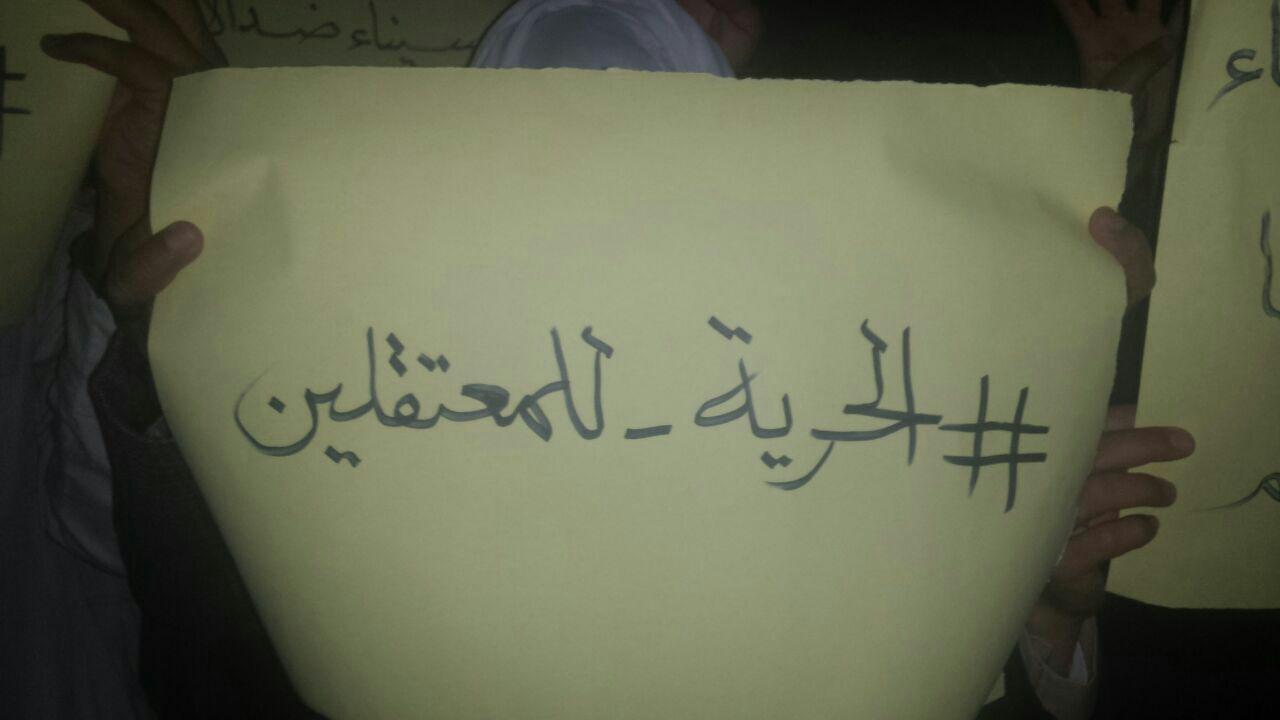 سيناء ضد الا
#الحرية_للمعتقلين